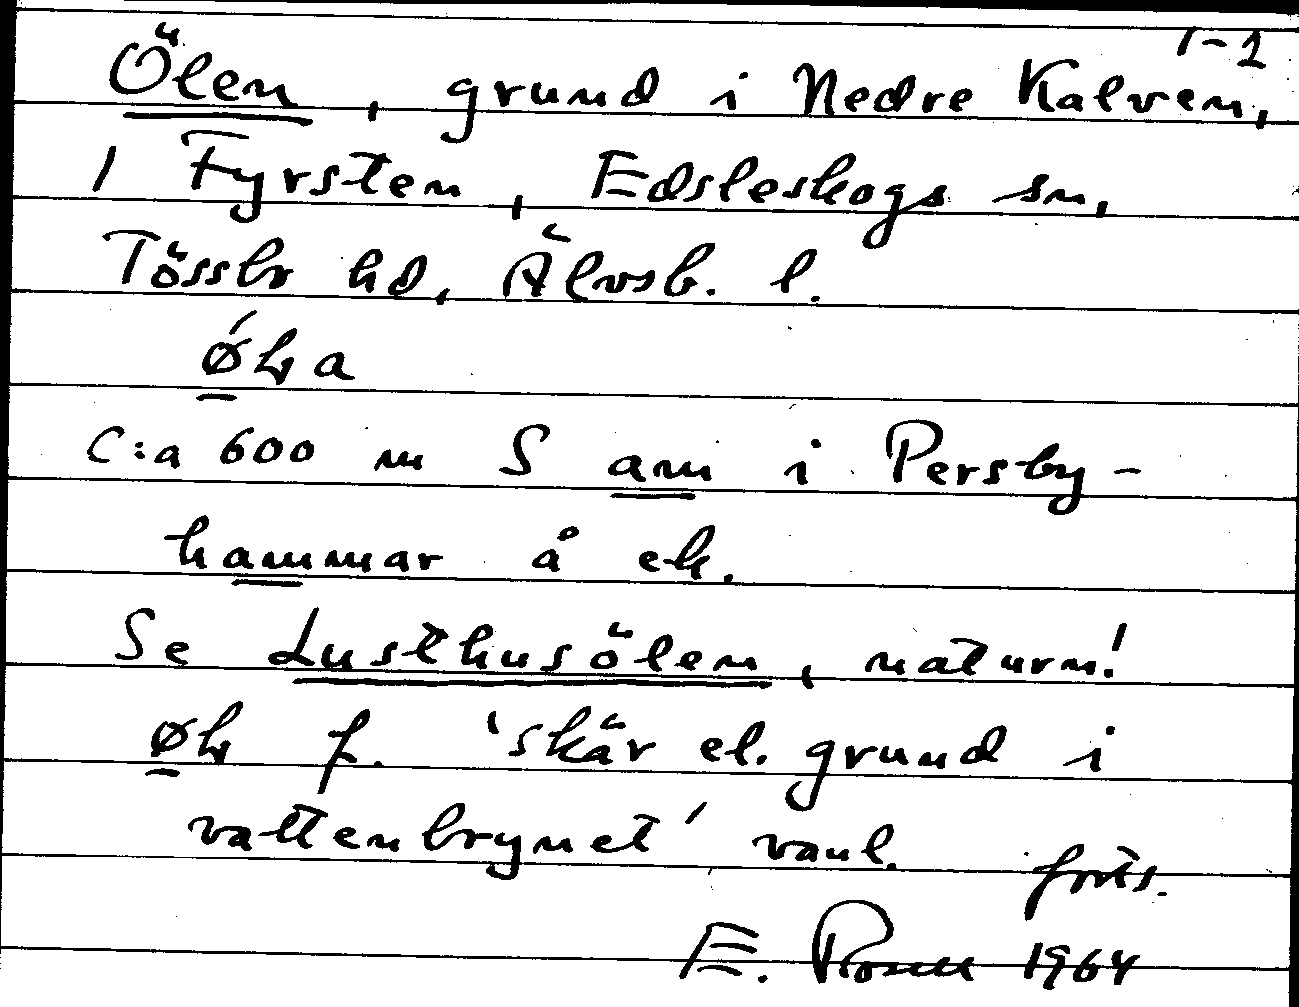 1-2
Ölen, grund i Nedre Kalven,
I Fyrsten, Edsleskogs sn,
Tössbr hd, Älvsb. l.
C:a 600 m S am i Persby-
hammar å ek.
Se Lusthusölen, naturn!
f. 'skär el. grund i
vattenbrynet' vanl. forts.
E. Rosell 1964